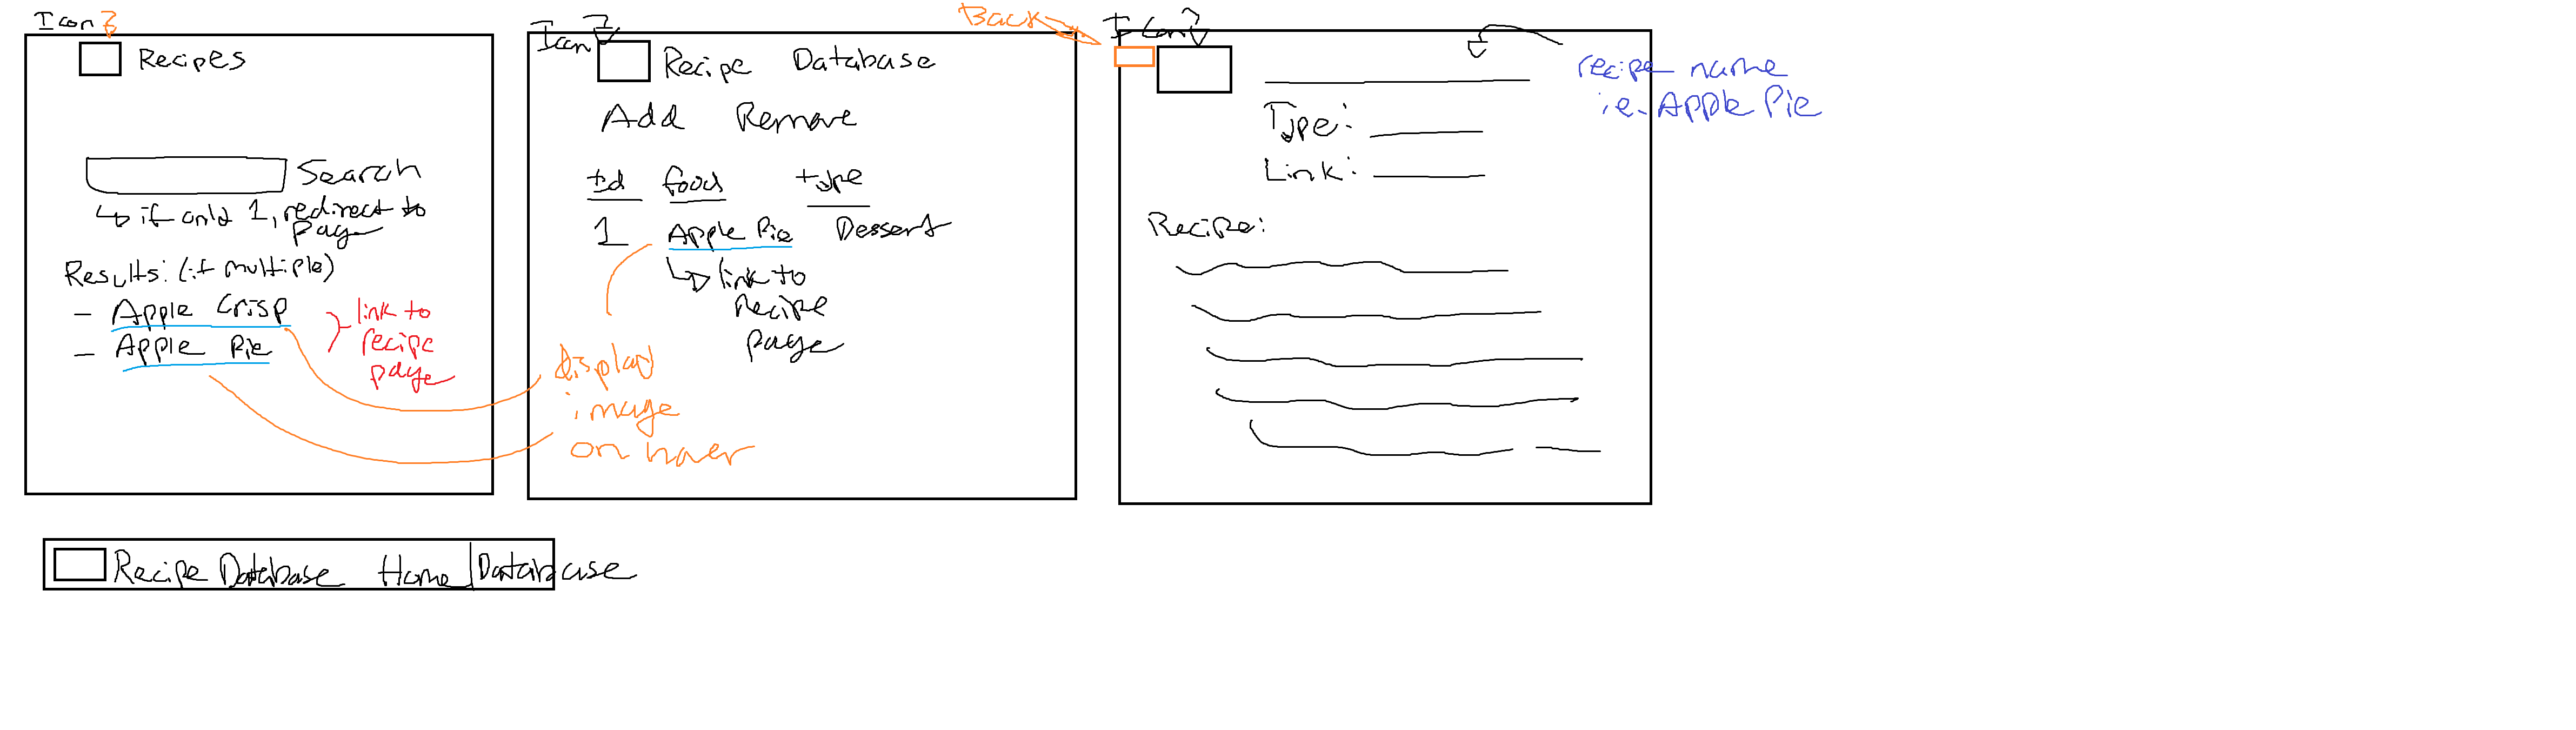 Icon
Recipes
Search
↳ if only 1, redirect to
page
Results: (if multiple)
- Apple Crisp
- Apple Pie
link to
recipe
page
Icon
Recipe Database
Add Remove
Id food type
1 Apple Pie Dessert
↳ link to
Recipe
page
display
image
on hover
Back
Icon
recipe name
i.e. Apple Pie
Type:
Link:
Recipe:
Recipe Database Home | Database